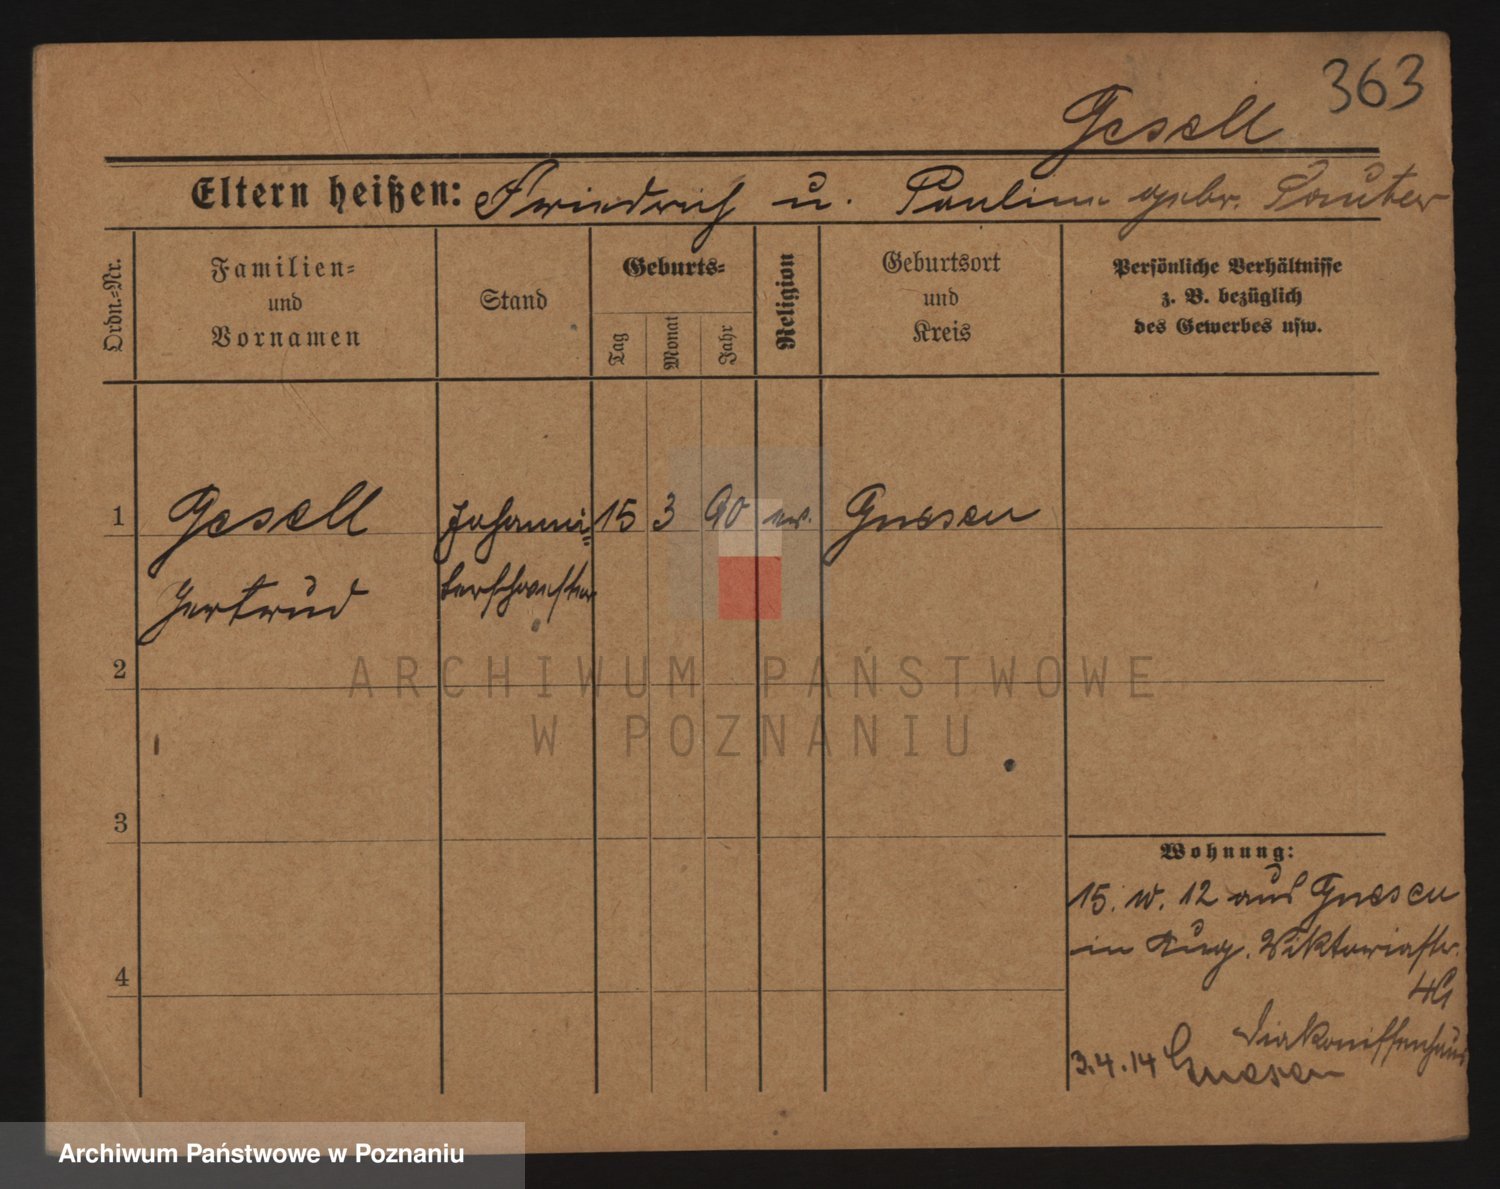 363
Gesell
Eltern heißen: Friedrich u. Pauline gebr. Sauter
Ordn.-Nr.
Familien-
und
Vornamen
Stand
Geburts-
Tag
Monat
Jahr
Religion
Geburtsort
und
Kreis
Persönliche Verhältnisse
z. B. bezüglich
des Gewerbes usw.
1 Gesell Johanni= 15 3 90 ev. Gnesen
Gertrud terschwester
2
ARCHIWUM PAŃSTWOWE
W POZNANIU
3
Wohnung:
15. 12 aus Gnesen
in Aug. Viktoriastr.
4
Diakonissenhaus
3.4.14 Gnesen
Archiwum Państwowe w Poznaniu